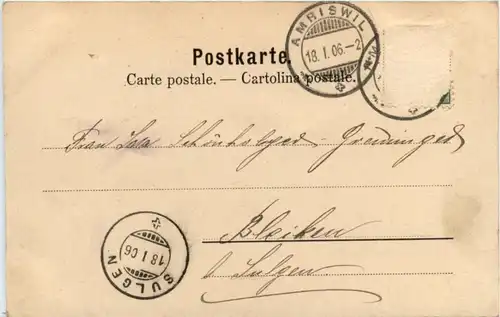 Postkarte.
Carte postale. — Cartolina postale.
AMRISWIL
18. I. 06.-2
Frau
Bleiken
b/ Sulgen
SULGEN
18 I 06